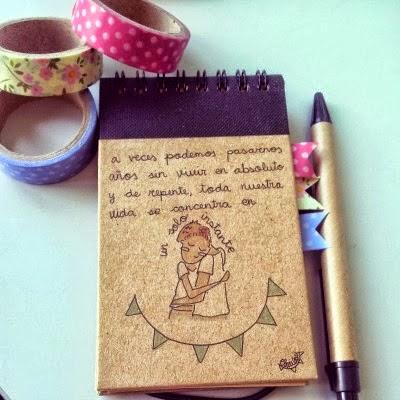 a veces podemos pasarnos
años sin vivir en absoluto
y de repente, toda nuestra
vida se concentra en
un solo instante